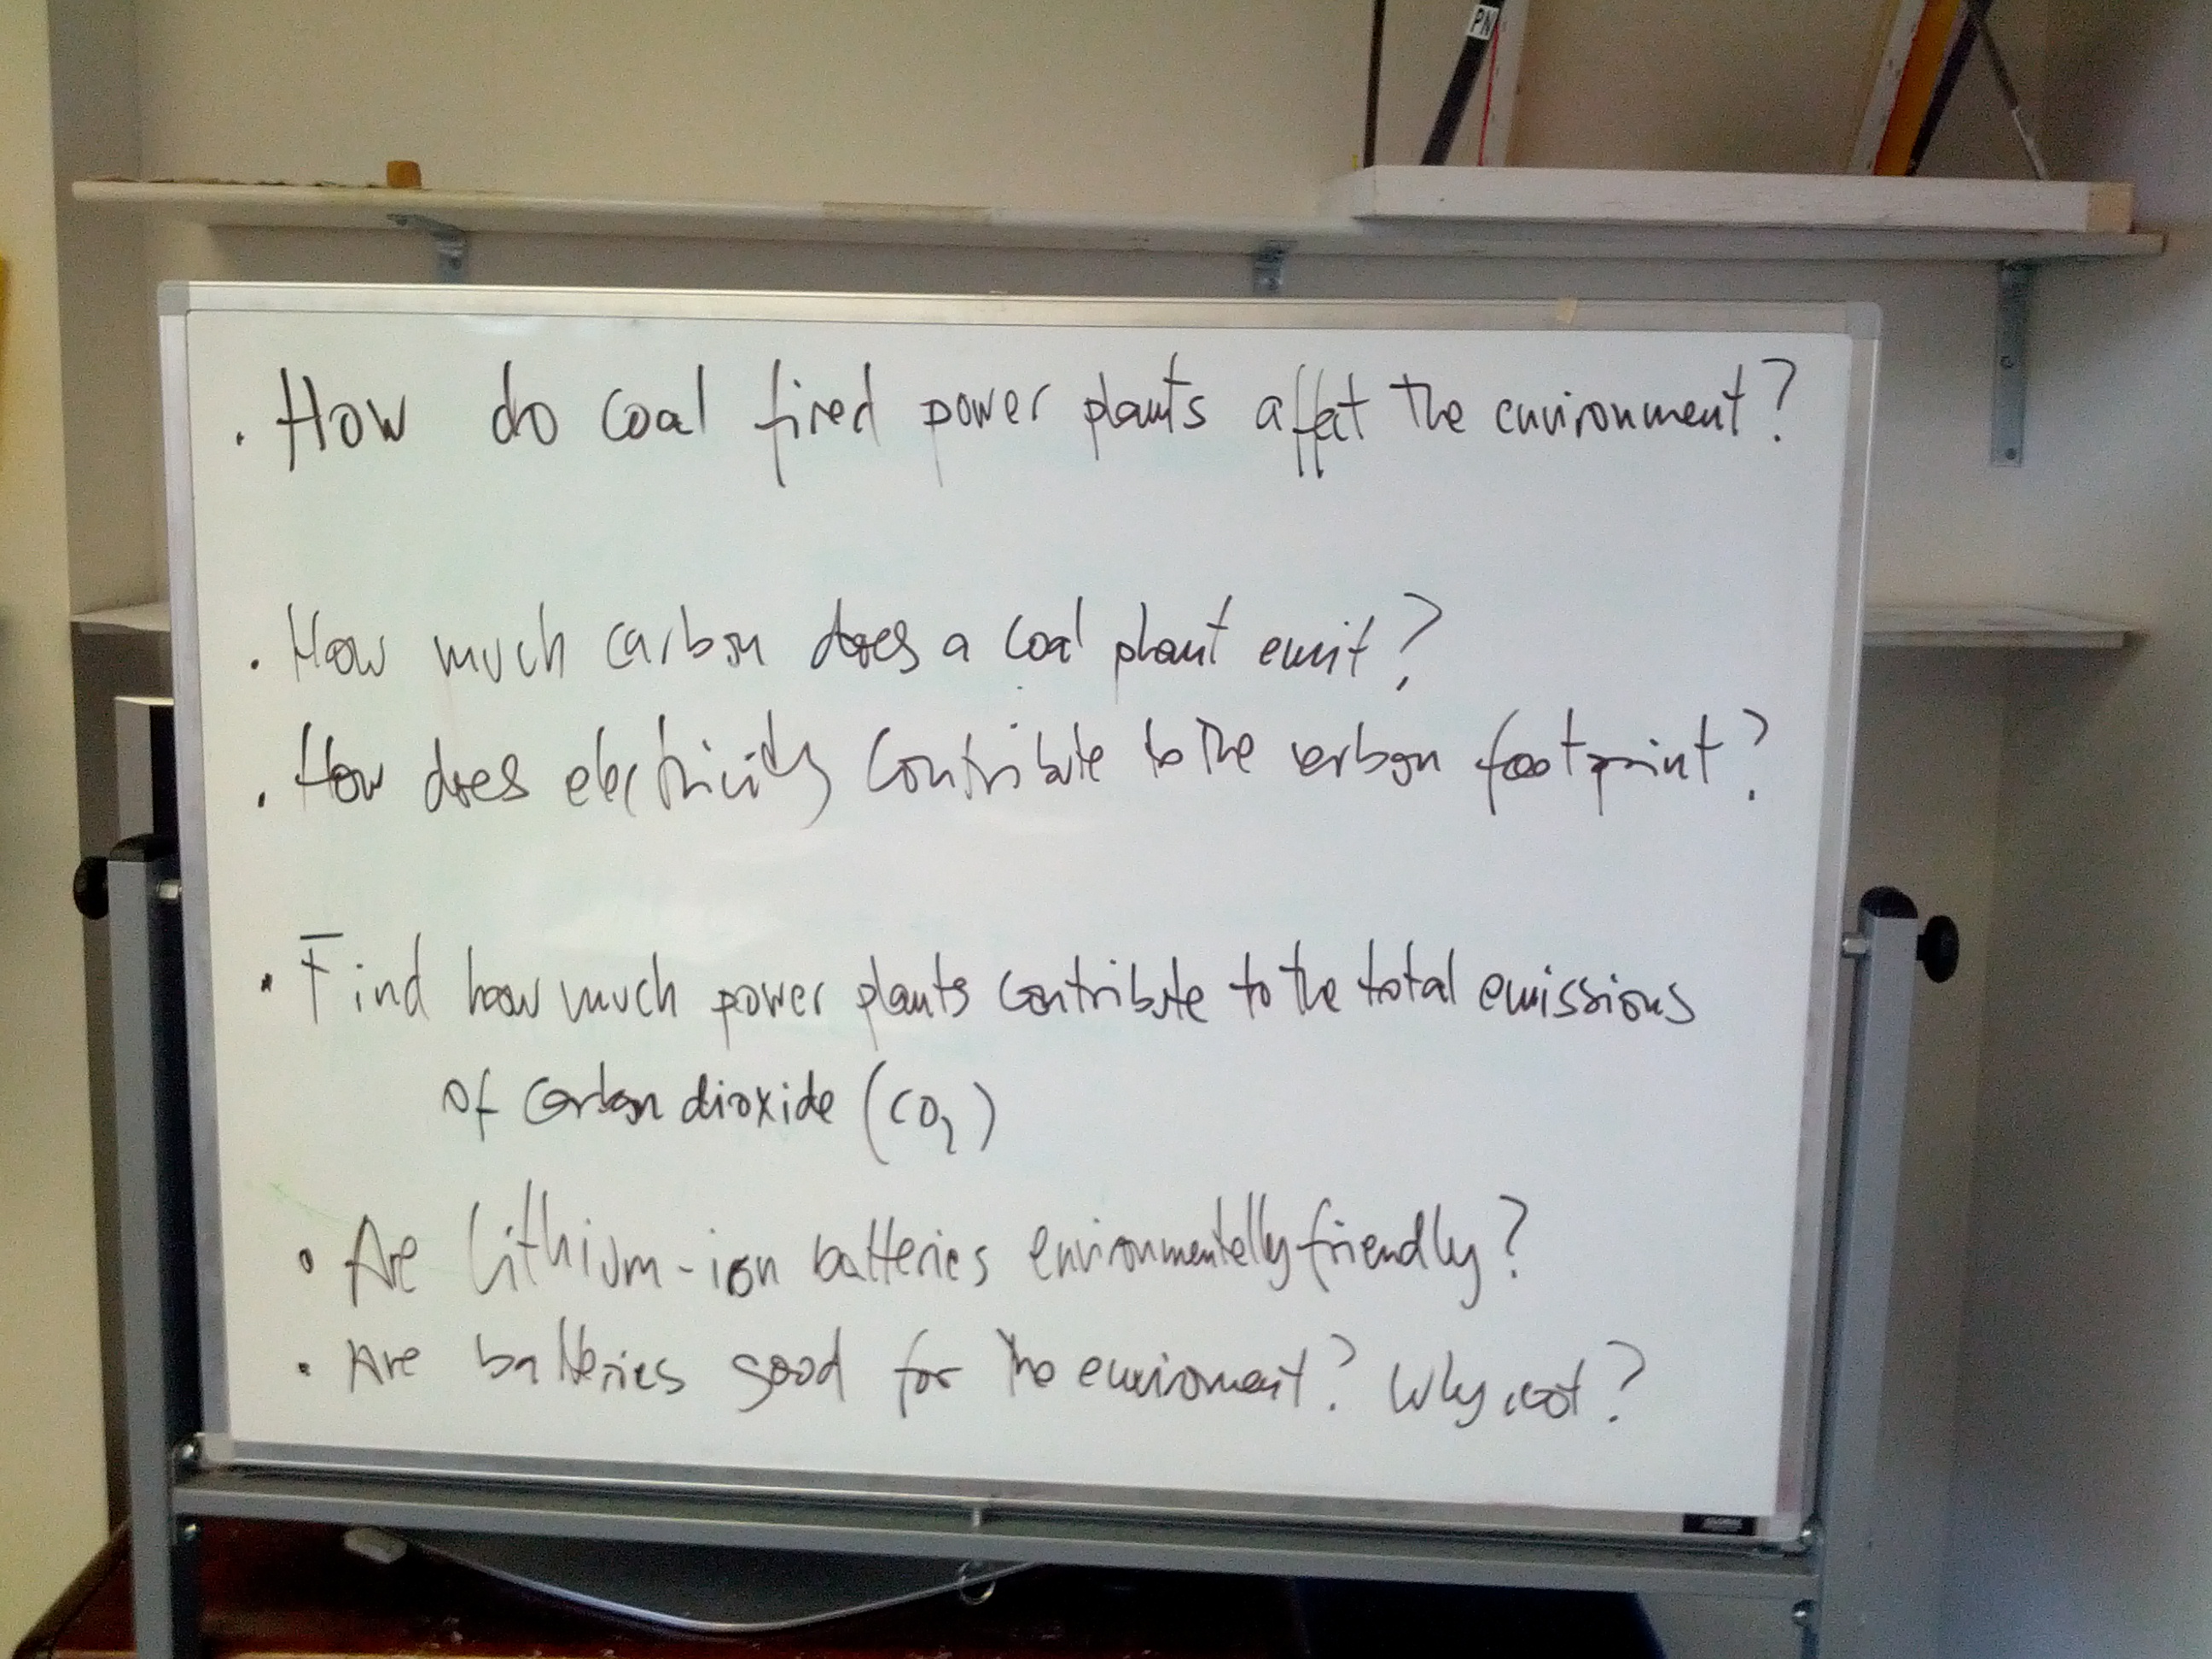 PN
. How do coal fired power plants affect the environment?
. How much carbon does a coal plant emit?
. How does electricity contribute to the carbon footprint?
• Find how much power plants contribute to the total emissions
of carbon dioxide (CO₂)
• Are Lithium-ion batteries environmentally friendly?
• Are batteries good for the enviroment? Why not?